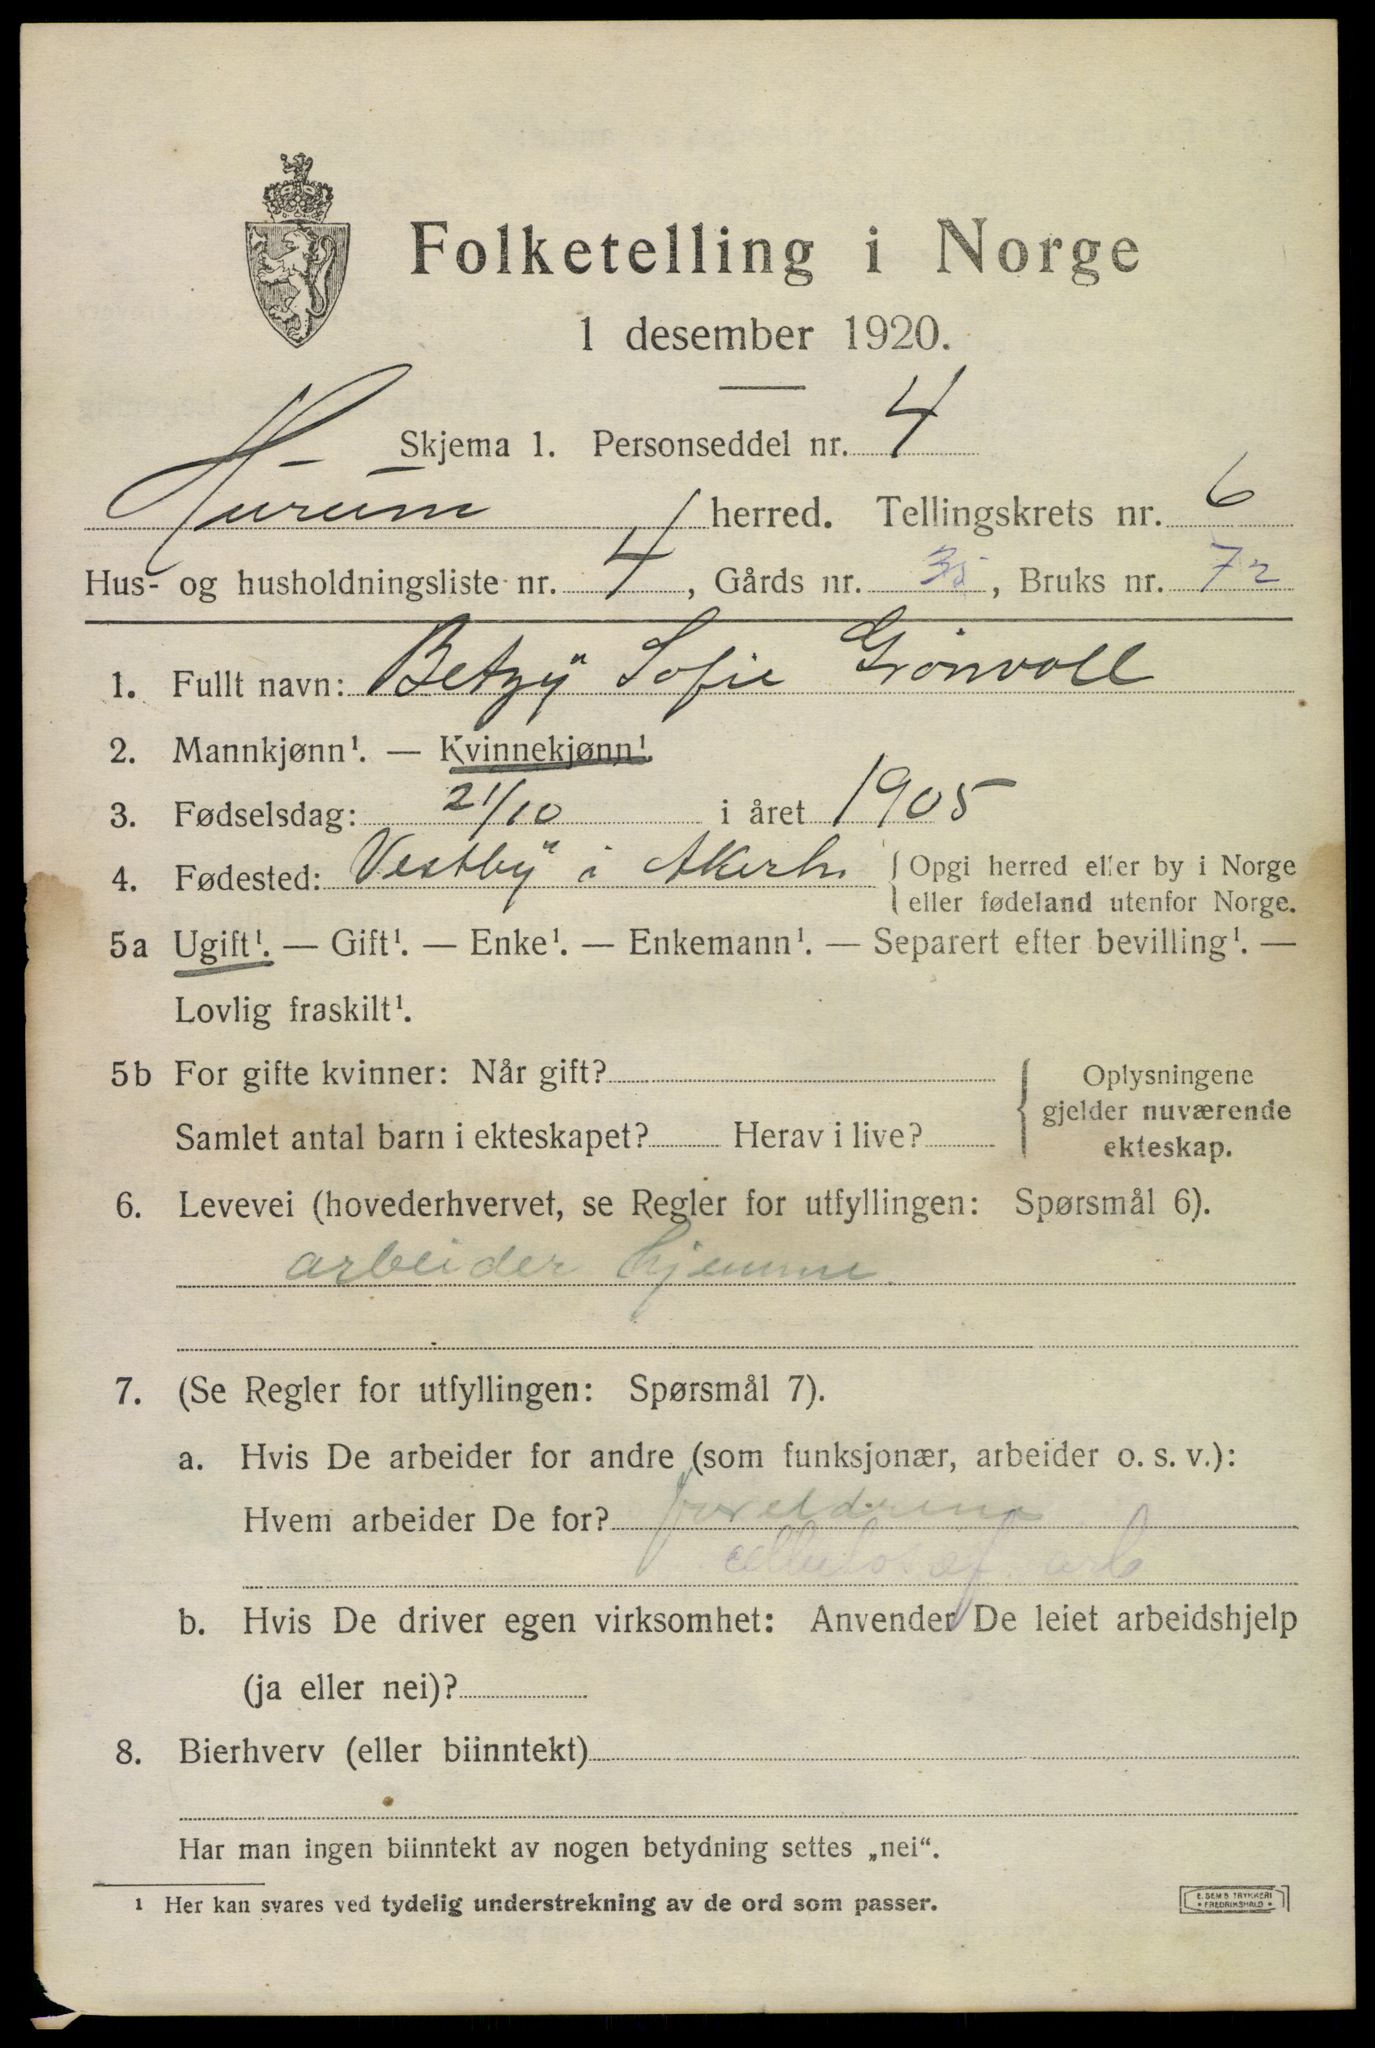 Folketelling i Norge
1 desember 1920.
Skjema 1. Personseddel nr. 4
Hurum herred. Tellingskrets nr. 6
Hus- og husholdningsliste nr. 4, Gårds nr. 35, Bruks nr. 72
1. Fullt navn: Betzy Sofie Grönvoll
2. Mannkjønn¹. — Kvinnekjønn¹.
3. Fødselsdag: 21/10 i året 1905
4. Fødested: Vestby i Akersh. { Opgi herred eller by i Norge
eller fødeland utenfor Norge.
5a Ugift¹. — Gift¹. — Enke¹. — Enkemann¹. — Separert efter bevilling¹. —
Lovlig fraskilt¹.
5b For gifte kvinner: Når gift?
Samlet antal barn i ekteskapet? Herav i live?
Oplysningene
gjelder nuværende
ekteskap.
6. Levevei (hovederhvervet, se Regler for utfyllingen: Spørsmål 6).
arbeider hjemme
7. (Se Regler for utfyllingen: Spørsmål 7).
a. Hvis De arbeider for andre (som funksjonær, arbeider o. s. v.):
Hvem arbeider De for? foreldrene
cellulosef. arb
b. Hvis De driver egen virksomhet: Anvender De leiet arbeidshjelp
(ja eller nei)?
8. Bierhverv (eller biinntekt)
Har man ingen biinntekt av nogen betydning settes „nei“.
¹ Her kan svares ved tydelig understrekning av de ord som passer.
E. SEM'S TRYKKERI
* FREDRIKSHALD *